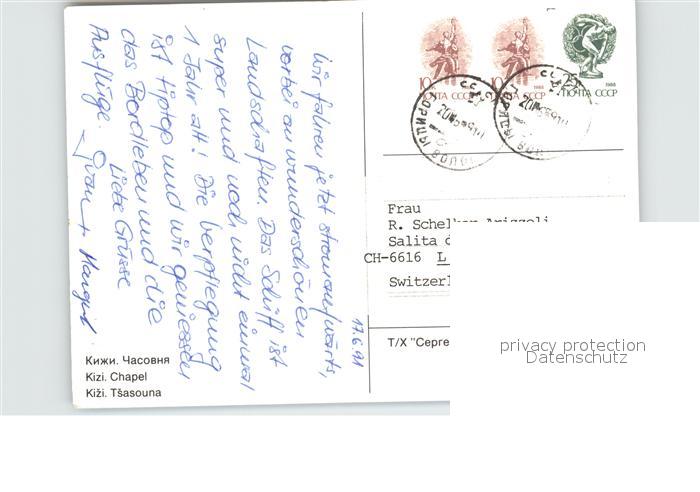 17.6.91
Wir fahren jetzt stromaufwärts,
vorbei an wunderschönen
Landschaften. Das Schiff ist
super und noch nicht einmal
1 Jahr alt! Die Verpflegung
ist tiptop und wir geniessen
das Bordleben und die
Ausflüge.
Liebe Grüsse
Margrit
Кижи. Часовня
Kizi. Chapel
Kiži. Tšasouna
10
ПОЧТА СССР
10
1988
ПОЧТА СССР
25
1988
ПОЧТА СССР
Frau
R. Schelker
Salita
CH-6616 L
Switzerl
Т/Х "Серге
privacy protection
Datenschutz